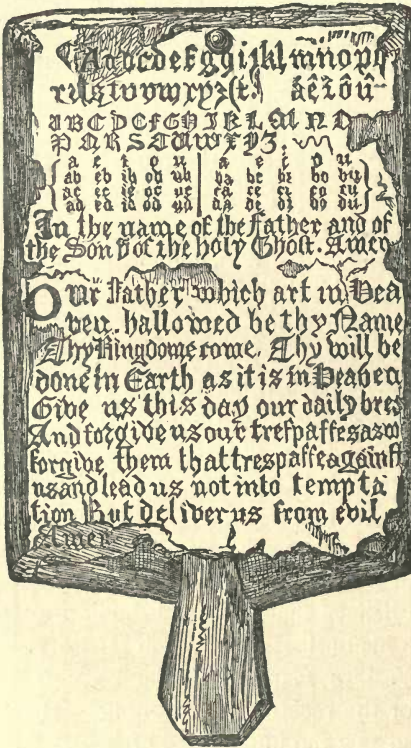 Aabcdefgghijklmnopq
rsstuvwxyz&t. áêîôû
ABCDEFGHIKLMNO
PQRSTUWXYZ.
a e i o u | a e i o u
ab eb ib ob ub | ba be bi bo bu
ac ec ic oc uc | ca ce ci co cu
ad ed id od ud | da de di do du
In the name of the Father and of
the Son & of the holy Ghost. Amen
Our Father which art in Hea
ven. hallowed be thy Name
Thy Kingdome come, Thy will be
done in Earth as it is in Heaven
Give us this day our daily bred
And forgive us our treſpaſſes as w
forgive them that trespaſſe againſt
us and lead us not into tempta
tion But deliver us from evil,
Amen